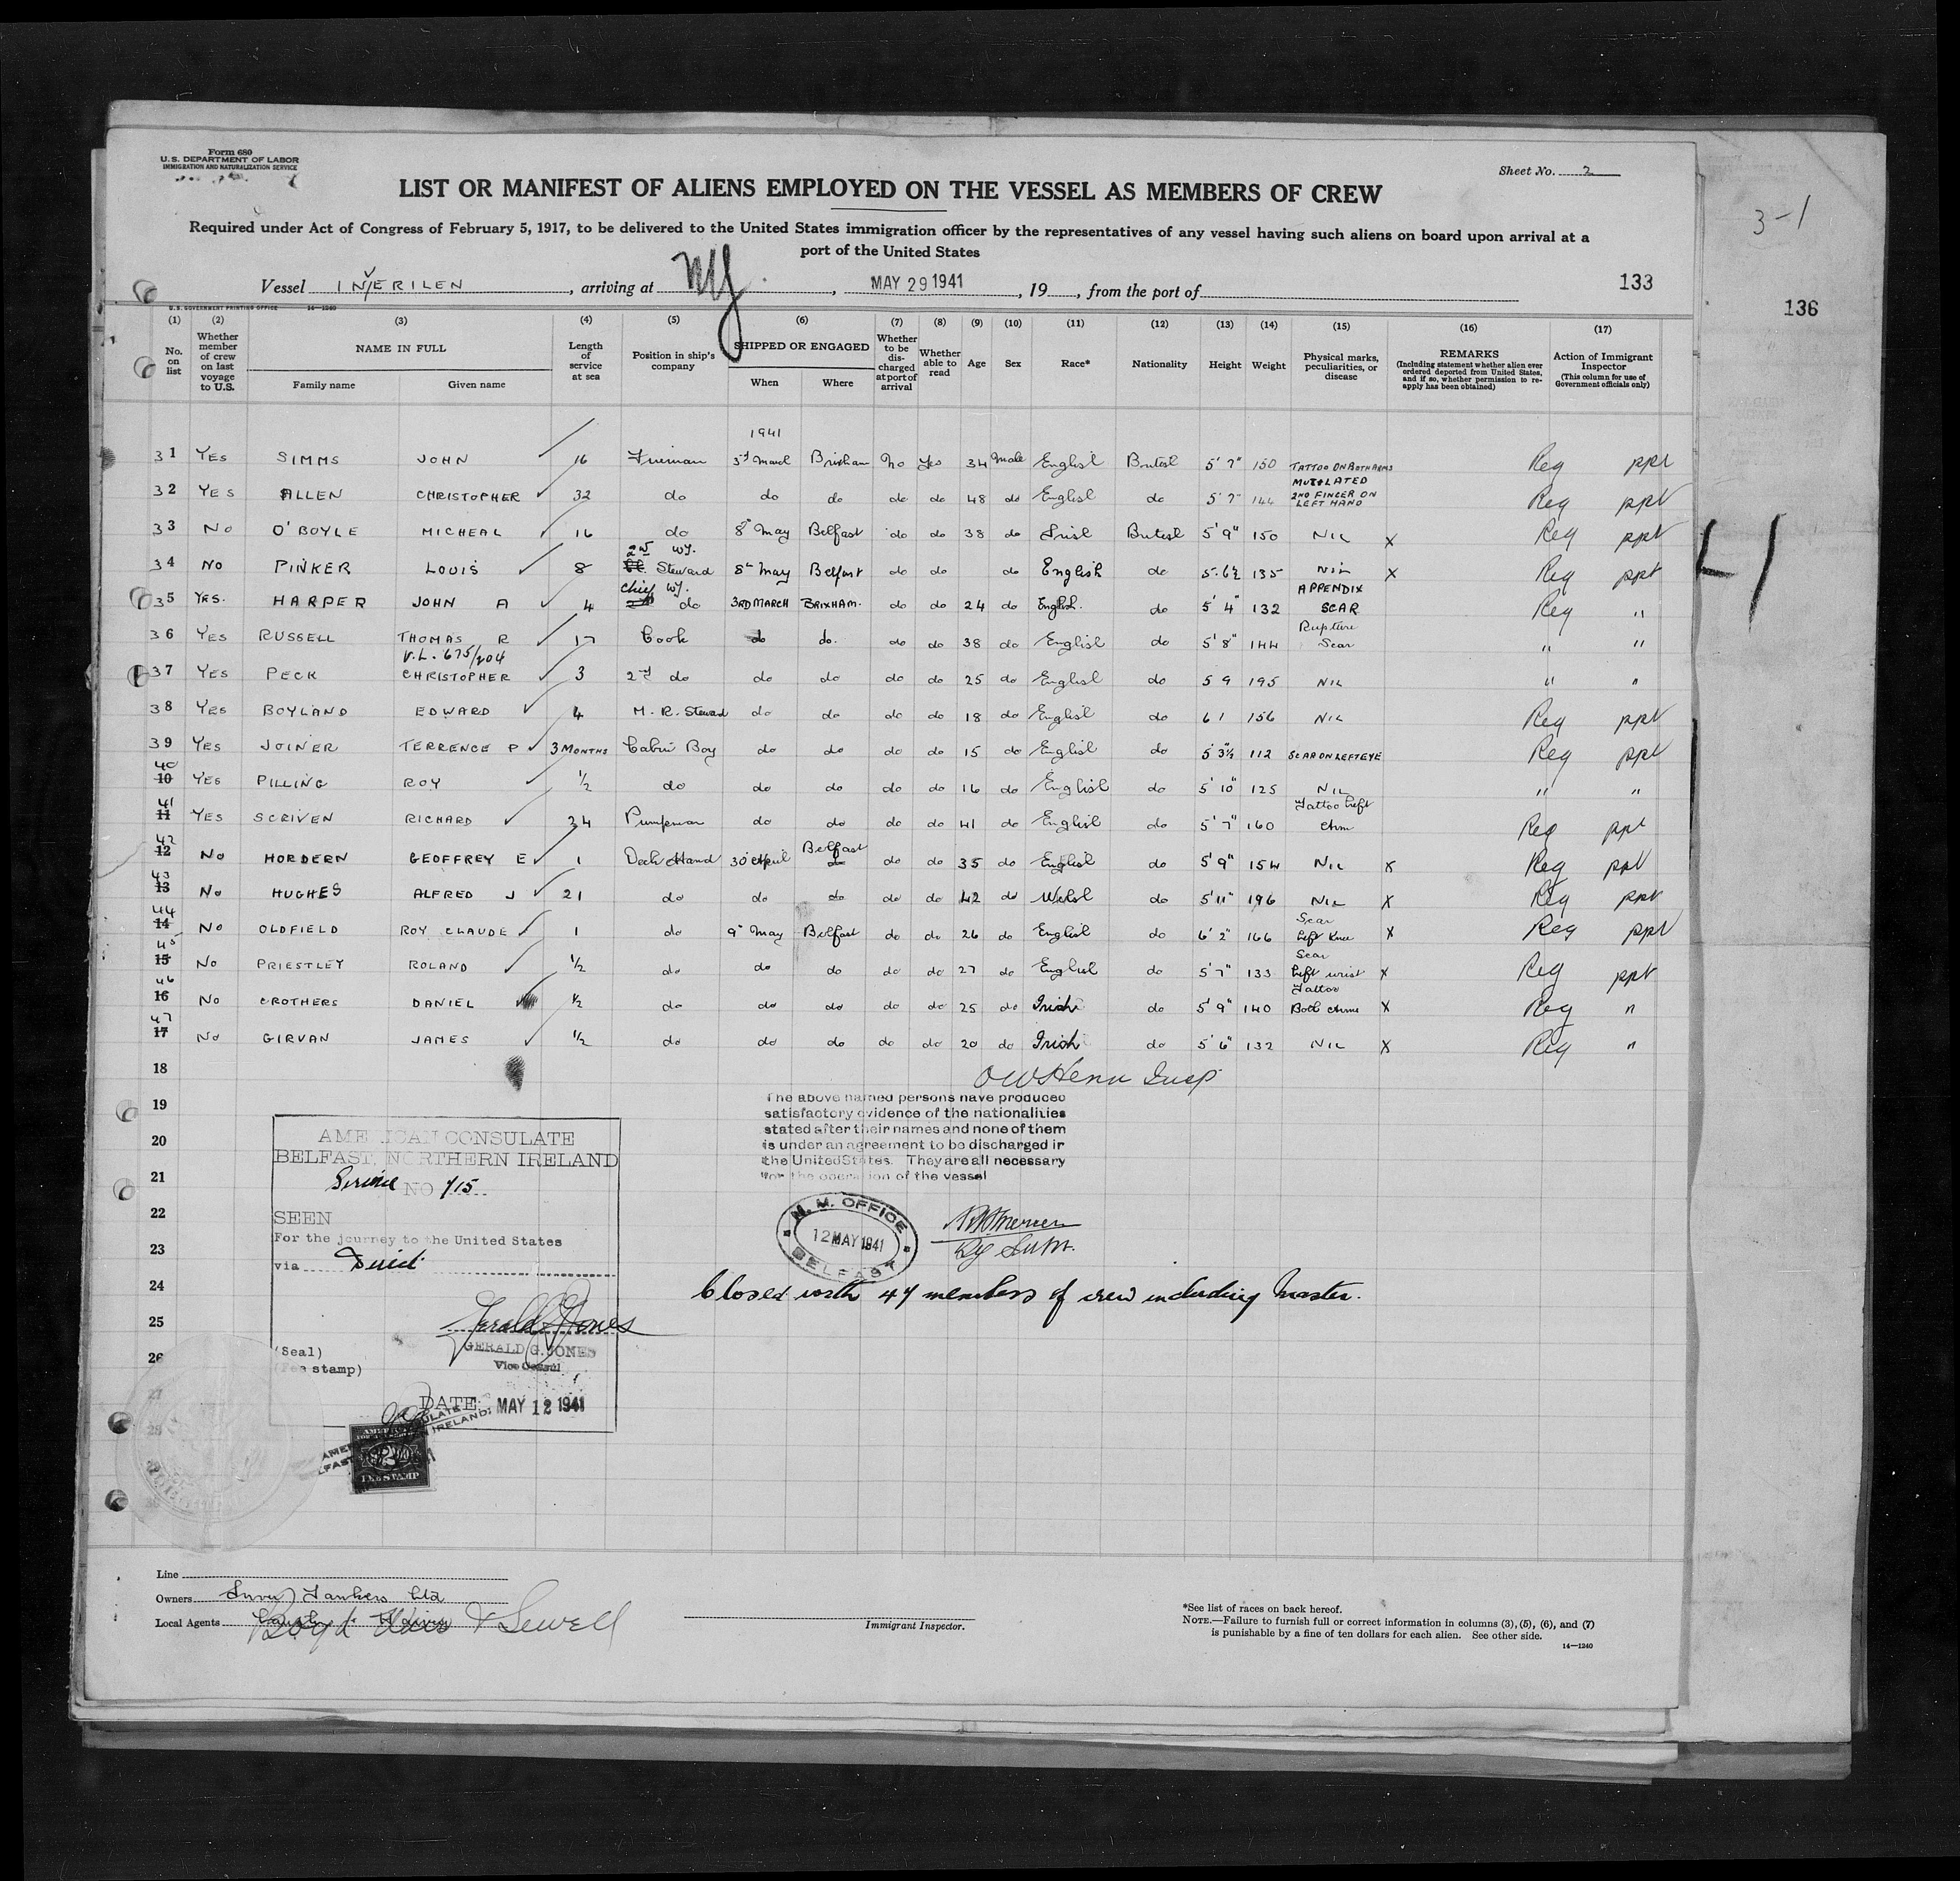 Form 680
U.S. DEPARTMENT OF LABOR
IMMIGRATION AND NATURALIZATION SERVICE
Sheet No. 2
3-1
LIST OR MANIFEST OF ALIENS EMPLOYED ON THE VESSEL AS MEMBERS OF CREW
Required under Act of Congress of February 5, 1917, to be delivered to the United States immigration officer by the representatives of any vessel having such aliens on board upon arrival at a
port of the United States
Vessel INVERILEN, arriving at NY, MAY 29 1941, 19, from the port of
133
136
U.S. GOVERNMENT PRINTING OFFICE 14—1240
(1) (2) (3) (4) (5) (6) (7) (8) (9) (10) (11) (12) (13) (14) (15) (16) (17)
No. on list
Whether member of crew on last voyage to U.S.
NAME IN FULL
Family name Given name
Length of service at sea
Position in ship's company
SHIPPED OR ENGAGED
When Where
Whether to be discharged at port of arrival
Whether able to read
Age Sex Race* Nationality Height Weight
Physical marks, peculiarities, or disease
REMARKS
(Including statement whether alien ever ordered deported from United States, and if so, whether permission to re-apply has been obtained)
Action of Immigrant Inspector
(This column for use of Government officials only)
1941
31 YES SIMMS JOHN 16 Fireman 3rd March Brixham No Yes 34 Male English British 5' 7" 150 TATTOO ON BOTH ARMS Reg ppt
32 YES ALLEN CHRISTOPHER 32 do do do do do 48 do English do 5' 7" 144 MUTILATED 2ND FINGER ON LEFT HAND Reg ppt
33 No O'BOYLE MICHEAL 16 do 8" May Belfast do do 38 do Irish British 5' 9" 150 NIL X Reg ppt
34 NO PINKER LOUIS 8 2nd Steward 8th May Belfast do do do English do 5. 6½ 135 NIL X Reg ppt
35 YES. HARPER JOHN A 4 Chief do 3RD MARCH BRIXHAM. do do 24 do English. do 5' 4" 132 APPENDIX SCAR Reg "
36 YES RUSSELL THOMAS R 17 Cook do do. do do 38 do English do 5' 8" 144 Rupture Scar " "
V.L. 675/204
37 YES PECK CHRISTOPHER 3 2nd do do do do do 25 do English do 5 9 195 NIL " "
38 YES BOYLAND EDWARD 4 M. R. Steward do do do do 18 do English do 6 1 156 NIL Reg ppt
39 YES JOINER TERRENCE P 3 MONTHS Cabin Boy do do do do 15 do English do 5' 3½" 112 SCAR ON LEFT EYE Reg ppt
40 10 YES PILLING ROY ½ do do do do do 16 do English do 5' 10" 125 NIL " "
41 11 YES SCRIVEN RICHARD 24 Pumpman do do do do 41 do English do 5' 7" 160 Tattoo Left Arm Reg ppt
42 12 No HORDERN GEOFFREY E 1 Deck Hand 30 April Belfast do do do 35 do English do 5' 9" 154 NIL X Reg ppt
43 13 No HUGHES ALFRED J 21 do do do do do 42 do Welsh do 5' 11" 196 NIL X Reg ppt
44 14 No OLDFIELD ROY CLAUDE 1 do 9" May Belfast do do 26 do English do 6' 2" 166 Scar Left Knee X Reg ppt
45 15 No PRIESTLEY ROLAND ½ do do do do do 27 do English do 5' 7" 133 Scar Left wrist X Reg ppt
46 16 No CROTHERS DANIEL ½ do do do do do 25 do Irish do 5' 9" 140 Tattoo Both Arms X Reg "
47 17 No GIRVAN JAMES ½ do do do do do 20 do Irish do 5' 6" 132 NIL X Reg "
18
19
20
21
22
23
24
25
26
27
28
The above named persons have produced
satisfactory evidence of the nationalities
stated after their names and none of them
is under an agreement to be discharged in
the United States. They are all necessary
for the operation of the vessel
AMERICAN CONSULATE
BELFAST, NORTHERN IRELAND
Service NO 715
SEEN
For the journey to the United States
via Direct
Gerald G Jones
GERALD G. JONES
Vice Consul
(Seal)
(Fee stamp)
DATE: MAY 12 1941
M. M. OFFICE
12 MAY 1941
BELFAST
Closed with 47 members of crew including Master.
FEE STAMP
Line
Owners Inver Tankers Ltd
Local Agents Boyd Weir & Sewell
Immigrant Inspector.
*See list of races on back hereof.
NOTE.—Failure to furnish full or correct information in columns (3), (5), (6), and (7)
is punishable by a fine of ten dollars for each alien. See other side.
14—1240